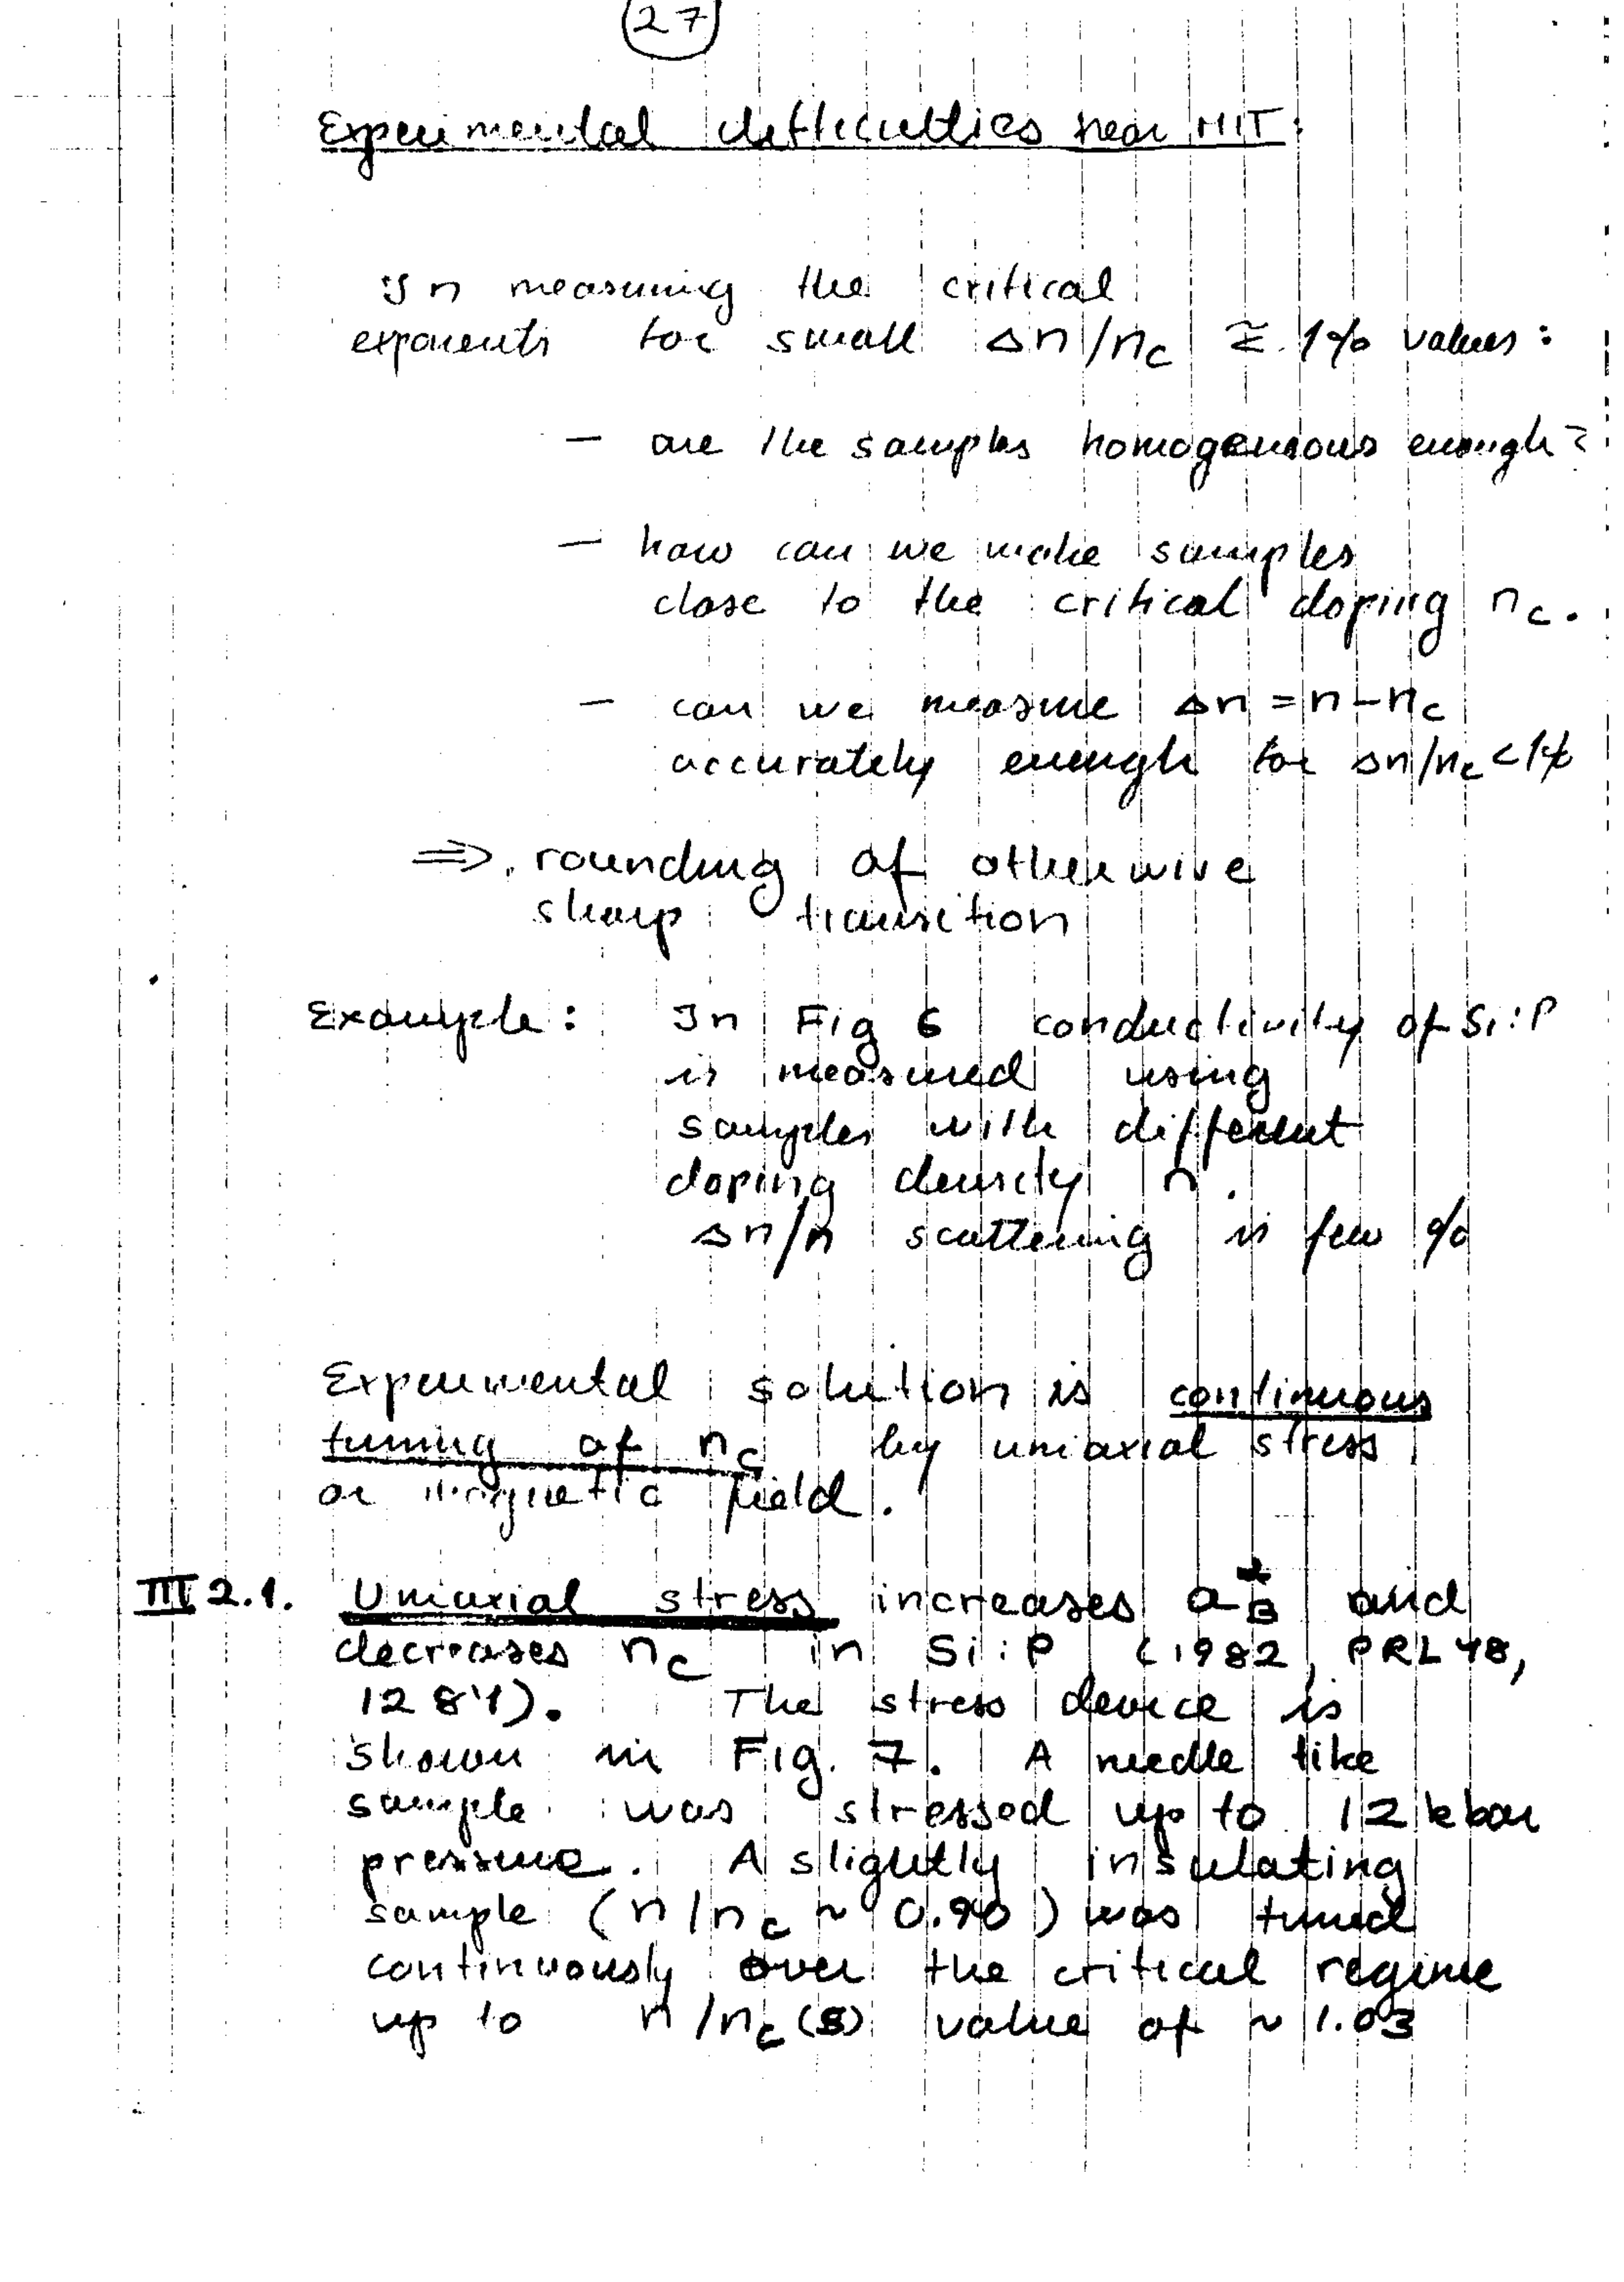 27
Experimental difficulties near MIT:
In measuring the critical
exponents for small Δn/nc ≅ 1% values:
– are the samples homogeneous enough?
– how can we make samples
close to the critical doping nc.
– can we measure Δn = n – nc
accurately enough for Δn/nc < 1%
⇒ rounding of otherwise
sharp transition
Example: In Fig 6 conductivity of Si:P
is measured using
samples with different
doping density n.
Δn/n scattering is few %
Experimental solution is continuous
tuning of nc by uniaxial stress
or magnetic field.
III 2.1. Uniaxial stress increases a*B and
decreases nc in Si:P (1982, PRL 48,
1284). The stress device is
shown in Fig. 7. A needle like
sample was stressed up to 12 kbar
pressure. A slightly insulating
sample (n/nc ~ 0.90) was tuned
continuously over the critical regime
up to n/nc(S) value of ~ 1.03